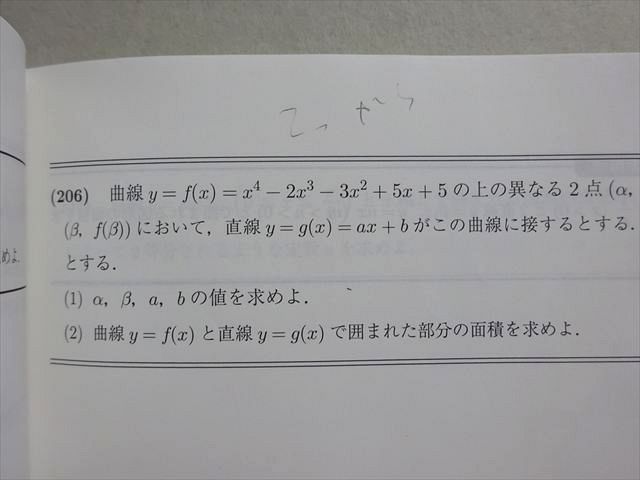 (206) 曲線 y = f(x) = x⁴ − 2x³ − 3x² + 5x + 5 の上の異なる 2 点 (α,
(β, f(β)) において, 直線 y = g(x) = ax + b がこの曲線に接するとする.
とする.
(1) α, β, a, b の値を求めよ.
(2) 曲線 y = f(x) と直線 y = g(x) で囲まれた部分の面積を求めよ.